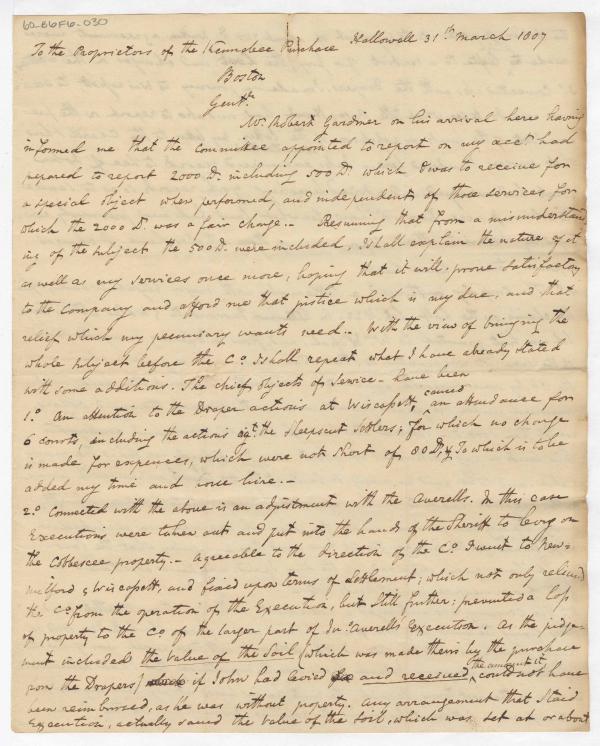 60-B6F6-030
To the Proprietors of the Kennebec Purchase Hallowell 31st March 1807
Boston
Gentn
Mr. Robert Gardiner on his arrival here having
informed me that the committee appointed to report on my acct had
prepared to report 2000 D. including 500 D. which I was to receive for
a special object when performed, and independent of those services for
which the 2000 D. was a fair charge.- Presuming that from a misunderstand
ing of the subject the 500 D. were included, I shall explain the nature of it
as well as my services once more, hoping that it will prove satisfactory
to the Company and afford me that justice which is my due, and that
relief which my pecuniary wants need.- With the view of bringing the
whole subject before the Co. I shall repeat what I have already stated
with some additions. The chief objects of service- have been
1.o An attention to the Draper actions at Wiscassett, caused an attendance for
6 courts, including the actions agt. the Sheepscut Settlers; for which no charge
is made for expences, which were not short of 80 D. & To which is to be
added my time and horse hire.-
2.o Connected with the above is an adjustment with the Averells. In this case
Executions were taken out and put into the hands of the Sheriff to levy on
the Cobbescee property.- Agreeable to the direction of the Co. I went to New-
milford & Wiscassett, and fixed upon terms of Settlement; which not only relieved
the Co. from the operation of the Execution, but still further; prevented a loss
of property to the Co. of the larger part of Jno. Averells Execution. As the judge-
ment included the value of the Soil (which was made theirs by the purchase
from the Drapers) if John had levied and received the amount it could not have
been reimbursed, as he was without property. Any arrangement that staid
Execution, actually saved the value of the Soil, which was set at or about